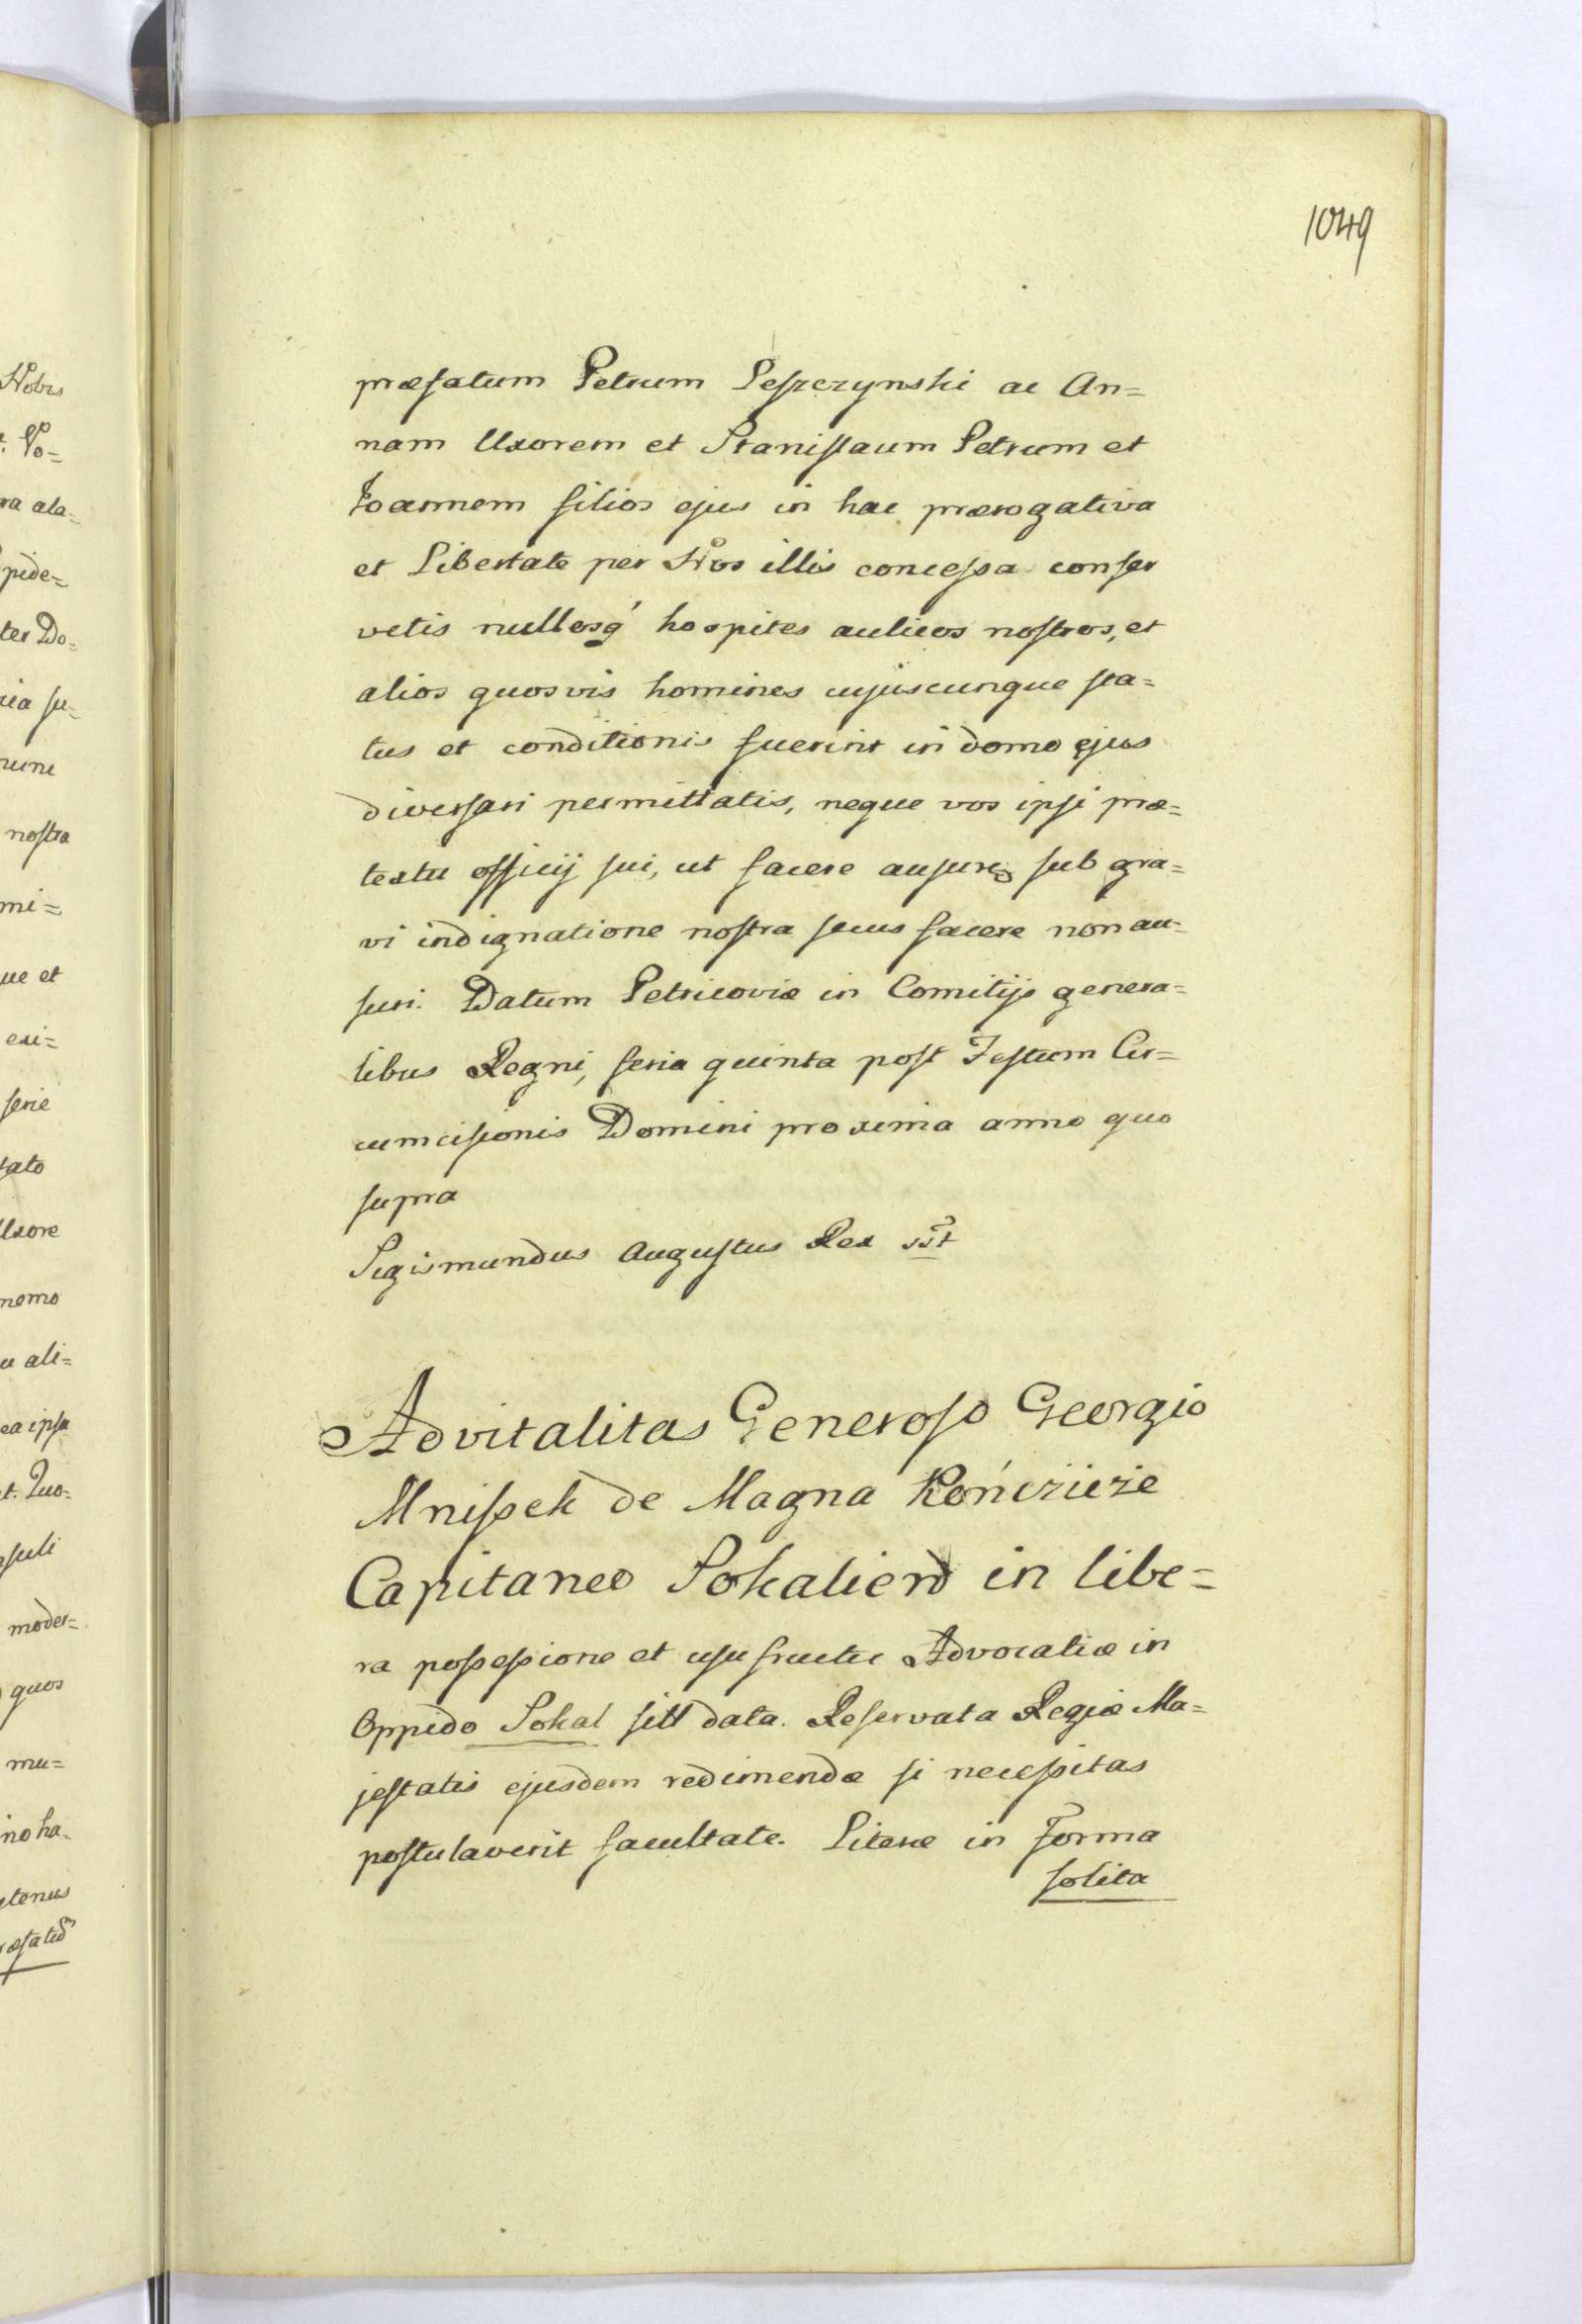 1049
præfatum Petrum Leszczynski ac An=
nam Uxorem et Stanislaum Petrum et
Joannem filios ejus in hac prærogativa
et Libertate per Nos illis concessa conser
vetis nullosq́ hospites aulicos nostros, et
alios quosvis homines cujuscunque sta=
tus et conditionis fuerint in domo ejus
diversari permittatis, neque vos ipsi præ=
textu officij sui, ut facere sub gra=
vi indignatione nostra secus facere non au=
suri. Datum Petricoviæ in Comitijs genera=
libus Regni, feria quinta post Festum Cir=
cumcisionis Domini proxima anno quo
supra
Sigismundus Augustus Rex sst
Advitalitas Generoso Georgio
Mnissek de Magna Kończicze
Capitaneo Sokalien in libe=
ra possessione et usufructu Advocatiæ in
Oppido Sokal sitt data. Reservata Regiæ Ma=
jestatis ejusdem redimendæ si necessitas
postulaverit facultate. Literæ in Forma
solita
Nobis
Vo=
ra ala=
pide=
ter Do=
ria su=
nunc
nostra
mi=
ue et
exi=
serie
tato
Uxore
nemo
u ali=
ea ipsa
t. Quo=
suli
moder=
quos
mu=
ino ha=
tenus